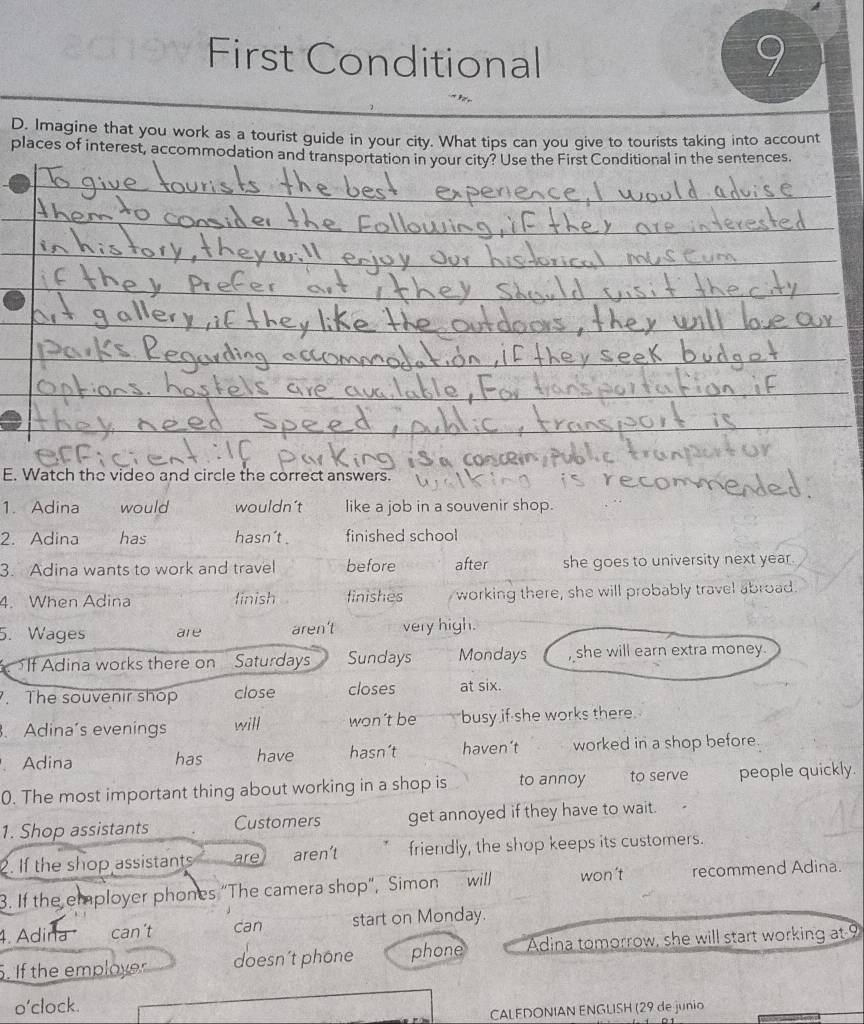 First Conditional
9
D. Imagine that you work as a tourist guide in your city. What tips can you give to tourists taking into account
places of interest, accommodation and transportation in your city? Use the First Conditional in the sentences.
To give tourists the best experience, I would advise
them to consider the Following, if they are interested
in history, they will enjoy our historical museum
if they prefer art, they should visit the city
art gallery, if they like the outdoors, they will love our
parks Regarding accommodation, if they seek budget
options. hostels are available, For transportation if
they need speed, public, transport is
efficient: If parking is a concern, public tranport or
walking is recommended.
E. Watch the video and circle the correct answers.
1. Adina would wouldn't like a job in a souvenir shop.
2. Adina has hasn't. finished school
3. Adina wants to work and travel before after she goes to university next year.
4. When Adina finish finishes working there, she will probably travel abroad.
5. Wages are aren't very high.
If Adina works there on Saturdays Sundays Mondays , she will earn extra money.
7. The souvenir shop close closes at six.
8. Adina's evenings will won't be busy if she works there.
. Adina has have hasn't haven't worked in a shop before.
0. The most important thing about working in a shop is to annoy to serve people quickly.
1. Shop assistants Customers get annoyed if they have to wait.
2. If the shop assistants are aren't friendly, the shop keeps its customers.
3. If the employer phones "The camera shop", Simon will won't recommend Adina.
4. Adina can't can start on Monday.
5. If the employer doesn't phone phone Adina tomorrow, she will start working at 9
o'clock.
CALEDONIAN ENGLISH (29 de junio